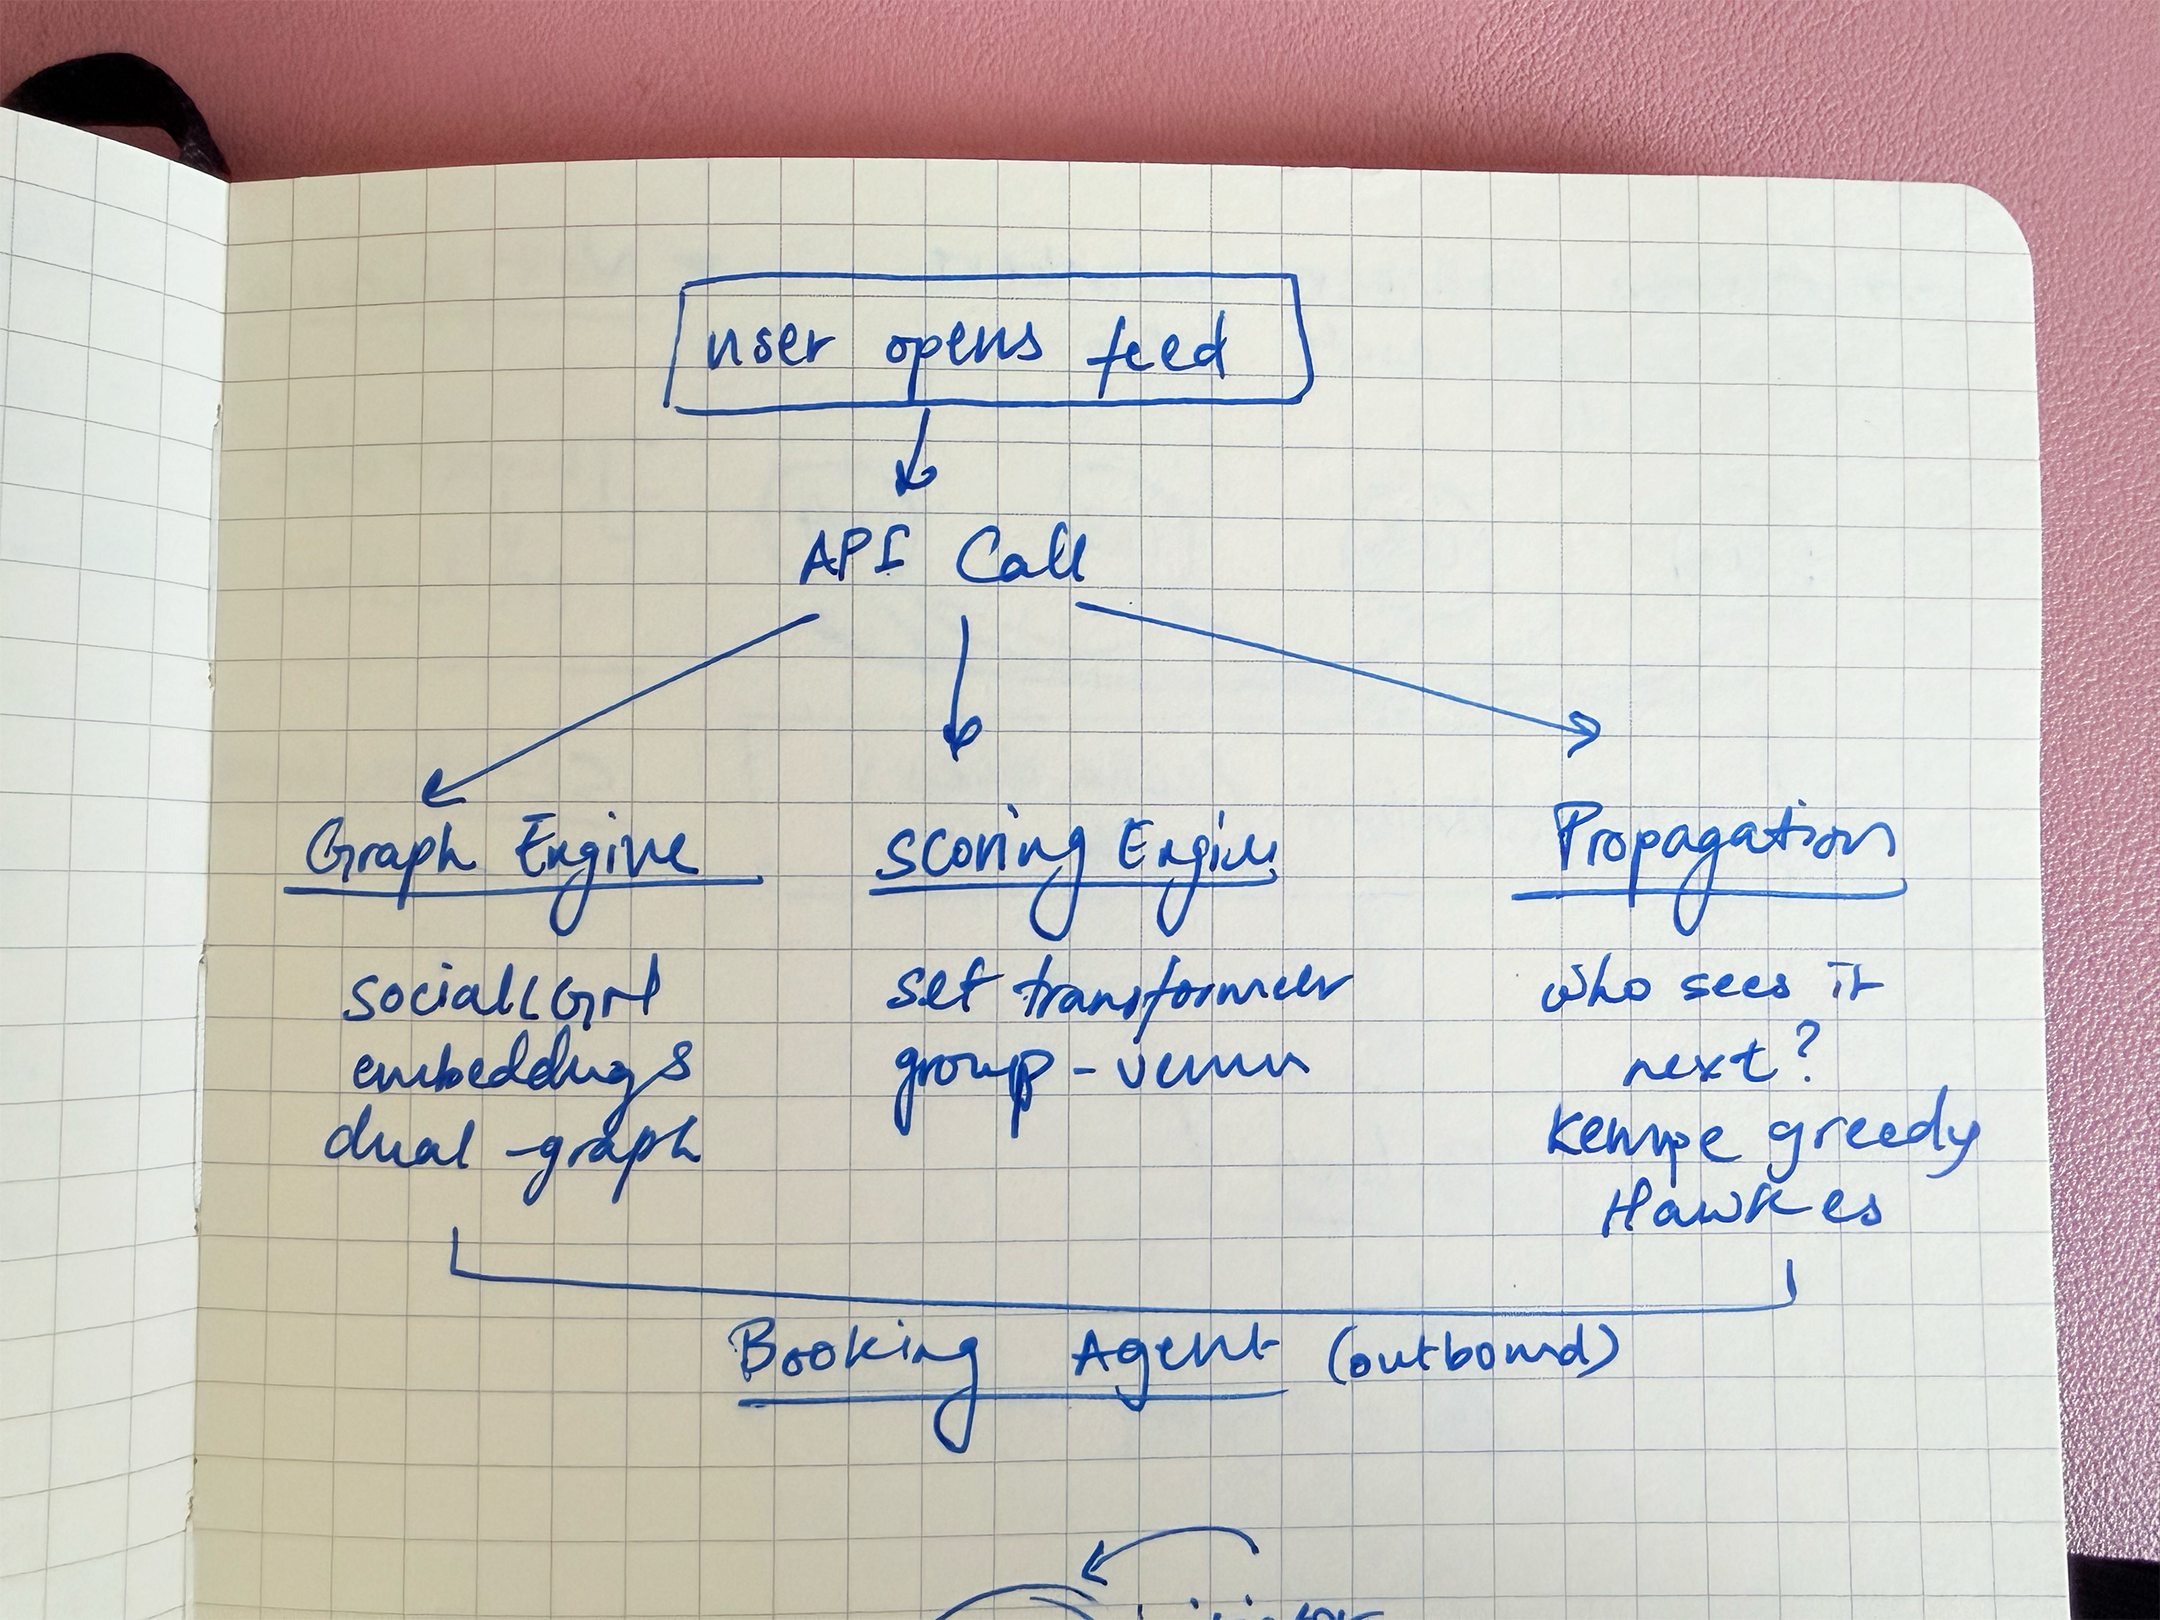 user opens feed
API Call
Graph Engine
Scoring Engine
Propagation
embeddings
dual-graph
set transformer
group-
who sees it
next?
Kempe greedy
Hawkes
Booking Agent (outbound)